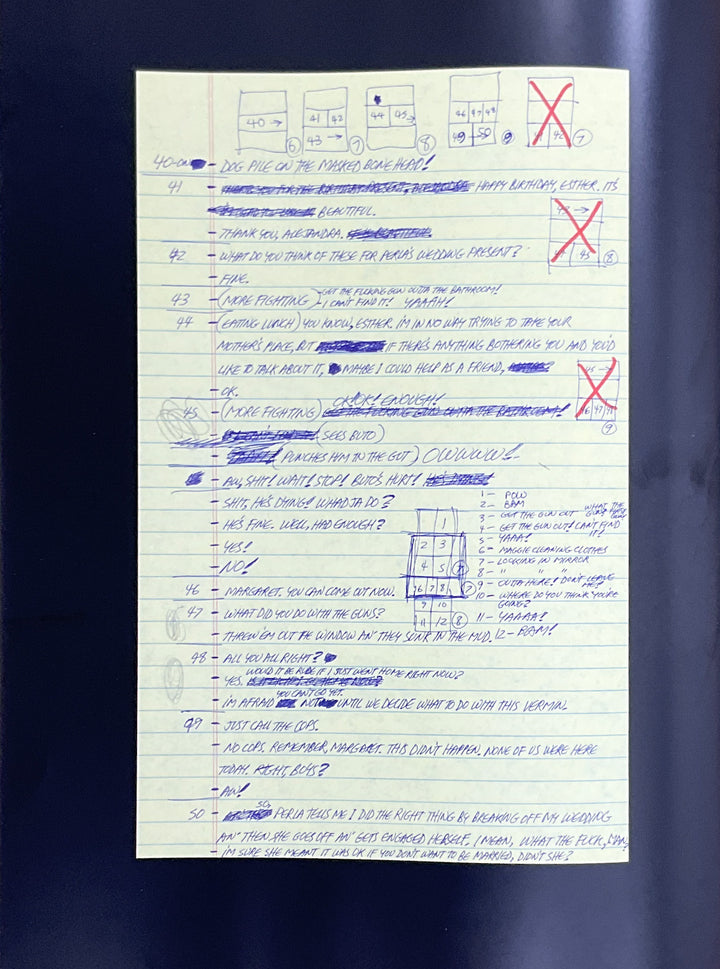 40 → 6
41 42 43 → 7
44 45 → 8
46 47 48 49 50 9
42 7
40-ON - DOG PILE ON THE MASKED BONEHEAD!
41 - HAPPY BIRTHDAY, ESTHER. IT'S
BEAUTIFUL.
- THANK YOU, ALEJANDRA.
42 - WHAT DO YOU THINK OF THESE FOR PERLA'S WEDDING PRESENT?
45 8
- FINE.
43 - (MORE FIGHTING) - GET THE FUCKING GUN OUTTA THE BATHROOM!
I CAN'T FIND IT! YAAAH!
44 - (EATING LUNCH) YOU KNOW, ESTHER. I'M IN NO WAY TRYING TO TAKE YOUR
MOTHER'S PLACE, BUT IF THERE'S ANYTHING BOTHERING YOU AND YOU'D
LIKE TO TALK ABOUT IT, MAYBE I COULD HELP AS A FRIEND,
45 → 47 9
- OK.
45 - (MORE FIGHTING) OK! OK! ENOUGH!
- (SEES BUTO)
- (PUNCHES HIM IN THE GUT) OWWWW!
- AW, SHIT! WAIT! STOP! BUTO'S HURT!
- SHIT, HE'S DYING! WHADTA DO?
- HE'S FINE. WELL, HAD ENOUGH?
- YES!
- NO!
1
2 3
4 5
6 7 8 7
9 10
11 12 8
1 - POW
2 - BAM
3 - GET THE GUN OUT WHAT THE
4 - GET THE GUN OUT! CAN'T FIND IT!
5 - YAAA!
6 - MAGGIE CLEANING CLOTHES
7 - LOOKING IN MIRROR
8 - " " "
9 - OUTTA HERE! DON'T LEAVE ME!
10 - WHERE DO YOU THINK YOU'RE GOING?
11 - YAAAA!
12 - BAM!
46 - MARGARET. YOU CAN COME OUT NOW.
47 - WHAT DID YOU DO WITH THE GUNS?
- THREW 'EM OUT THE WINDOW AN' THEY SUNK IN THE MUD.
48 - ALL YOU ALL RIGHT?
- YES. WOULD IT BE RUDE IF I JUST WENT HOME RIGHT NOW?
- I'M AFRAID YOU CAN'T GO YET. NOT UNTIL WE DECIDE WHAT TO DO WITH THIS VERMIN.
49 - JUST CALL THE COPS.
- NO COPS. REMEMBER, MARGARET. THIS DIDN'T HAPPEN. NONE OF US WERE HERE
TODAY. RIGHT, BOYS?
- AW!
50 - SO, PERLA TELLS ME I DID THE RIGHT THING BY BREAKING OFF MY WEDDING
AN' THEN SHE GOES OFF AN' GETS ENGAGED HERSELF. I MEAN, WHAT THE FUCK, MAN,
- I'M SURE SHE MEANT IT WAS OK IF YOU DON'T WANT TO BE MARRIED, DIDN'T SHE?